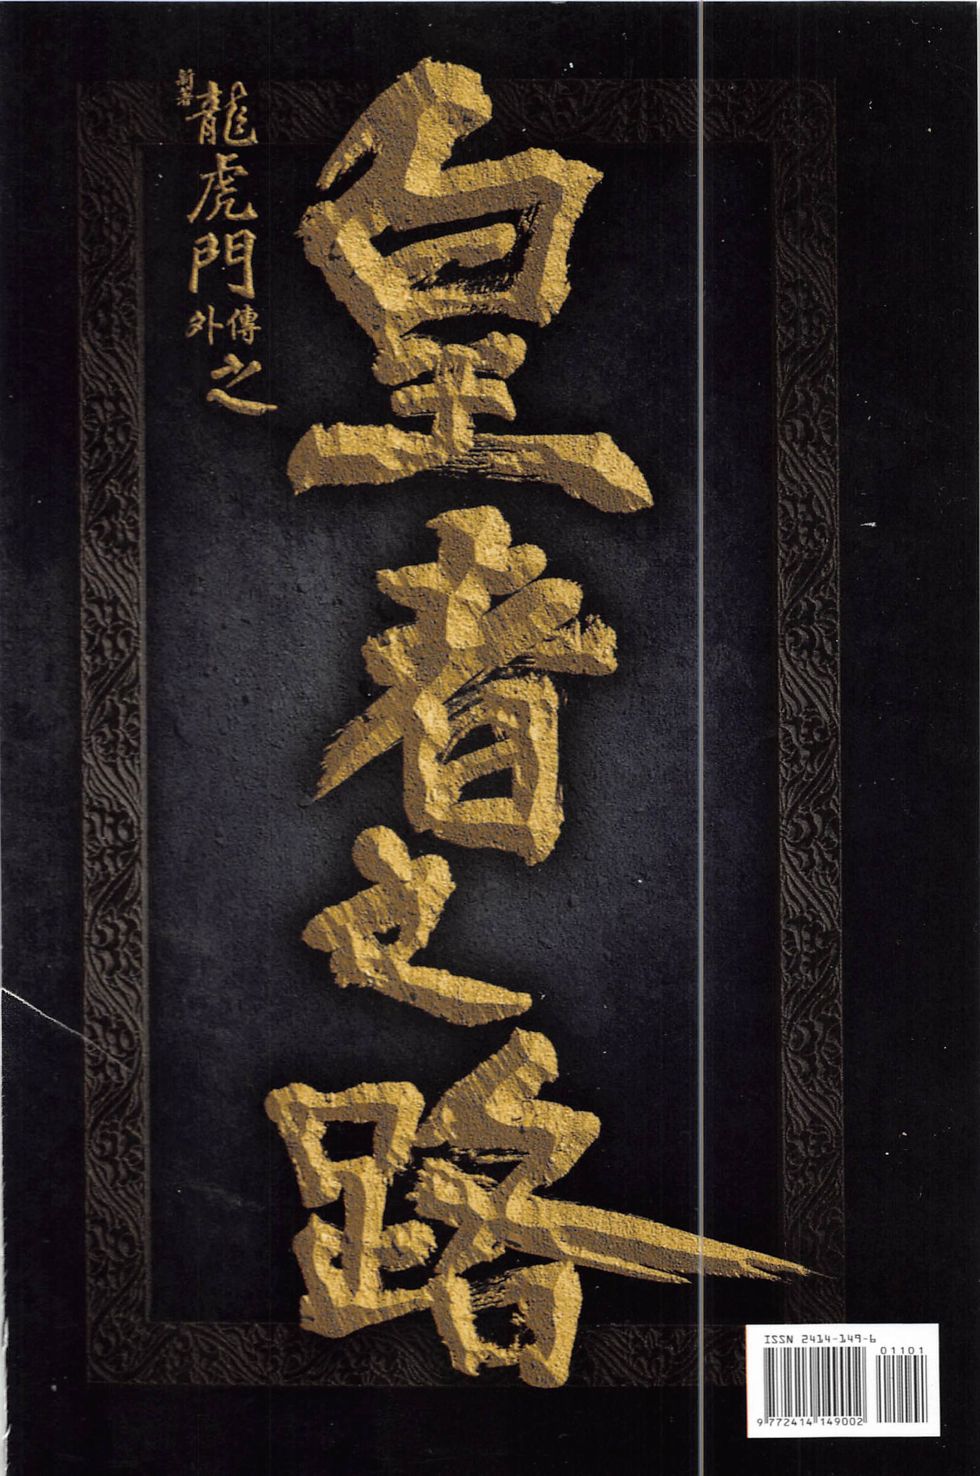 新著
龍虎門
外傳
之
皇者之路
ISSN 2414-149-6
01101
9 772414 149002